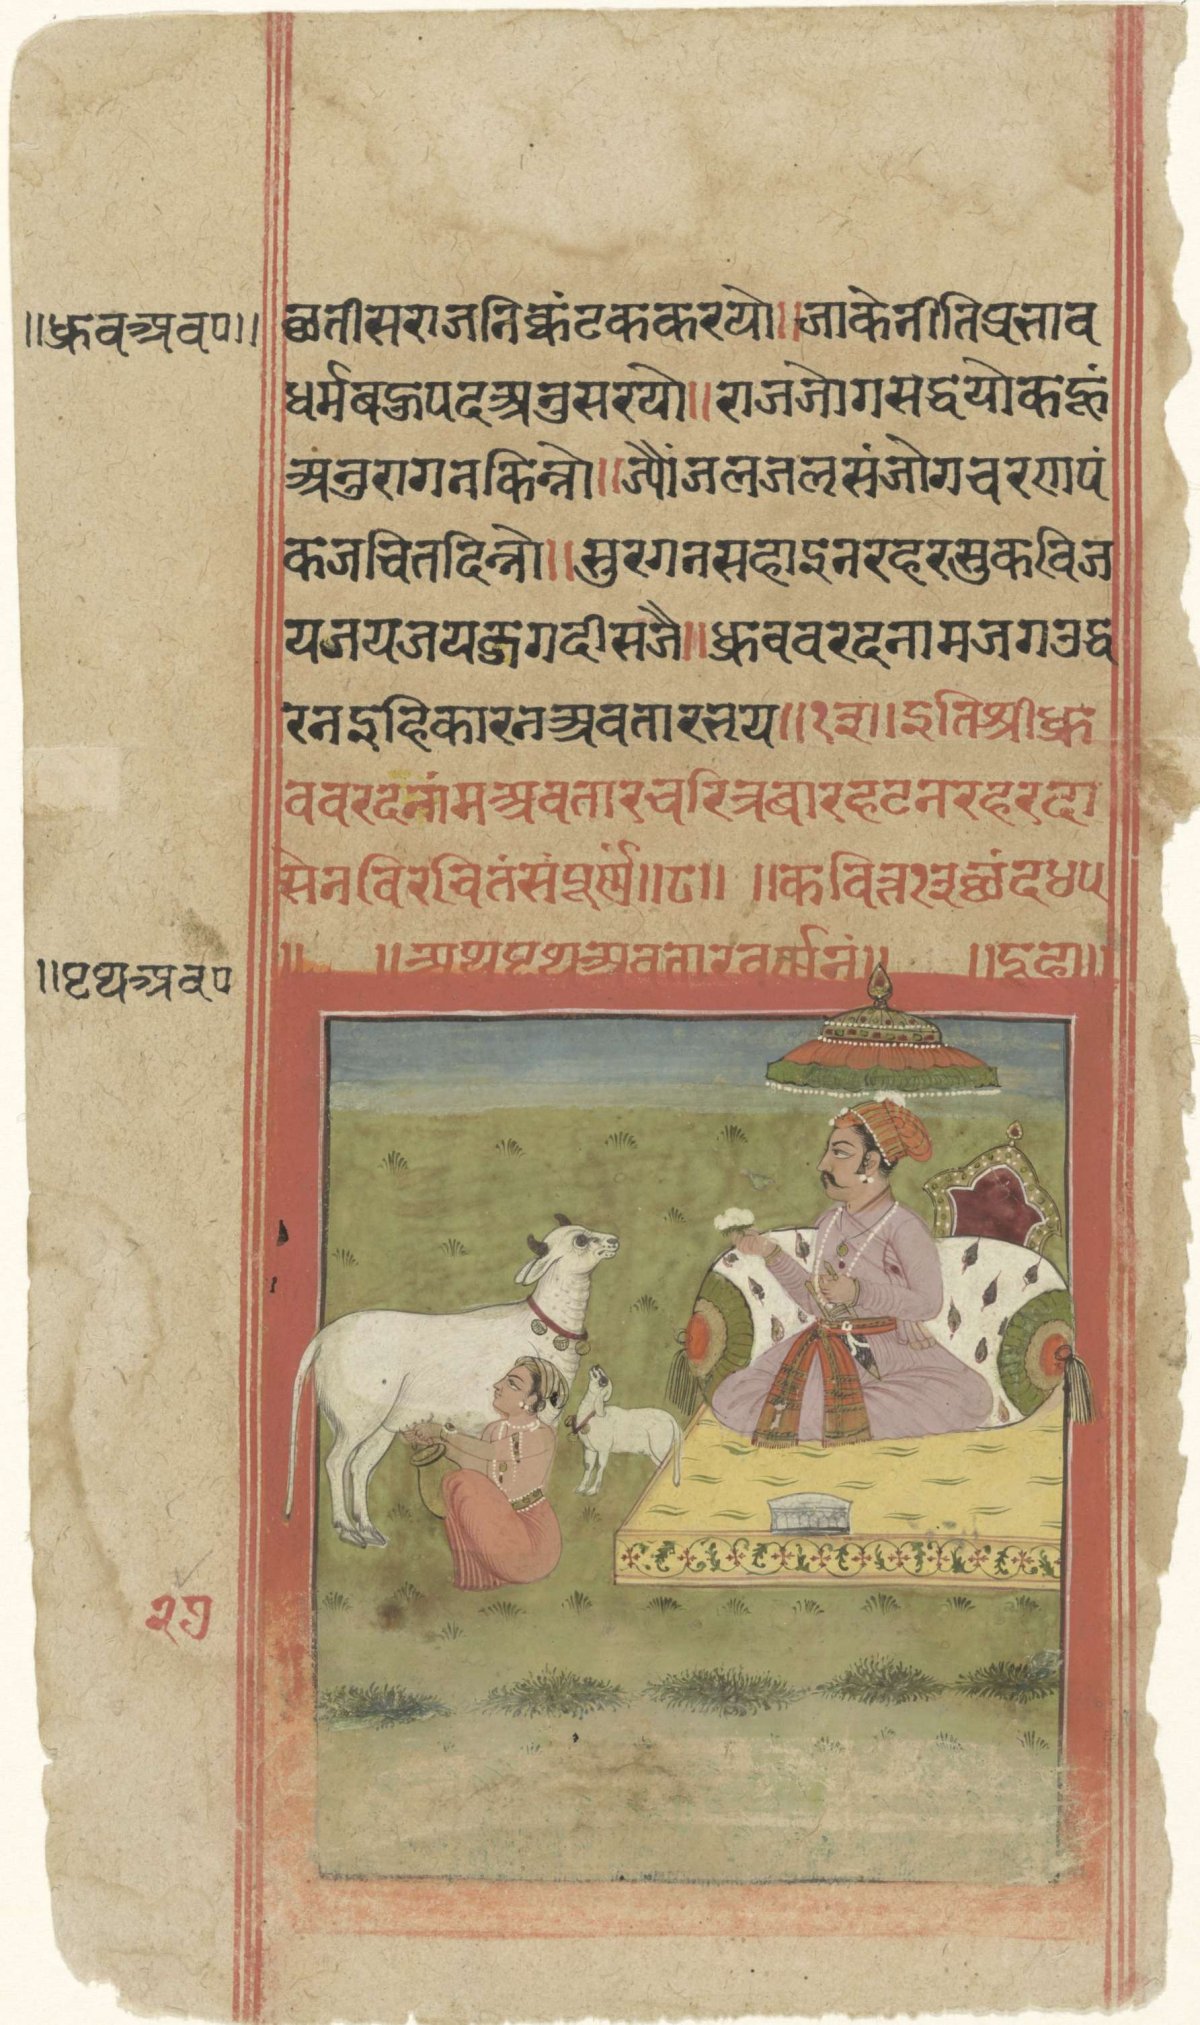 ॥ध्रुवअव॰॥
छतीसराजनिक्कंटककरयो॥जाकेनीतिप्रताव
धर्मबहुपदअनुसरयो॥राजजोगसद्वयोकहूं
अंनुरागनकिन्नो॥ज्यौंजलजलसंजोगचरणपं
कजचितदिन्नो॥सुरगनसहाइनरहरसुकविज
यजयजयजगदीसजै॥ध्रुववरदनामजगउद्ध
रनइहिकारनअवतारत्नय॥१३॥इतिश्रीध्रु
ववरदनांमअवतारचरित्रबारहटनरहरदा
सेनविरचितंसंपूर्णं॥८॥ ॥कवित्त१३छंद४५
॥ ॥अथप्रथअवतारवर्ननं॥ ॥दूहा॥
॥प्रथअव॰
२७